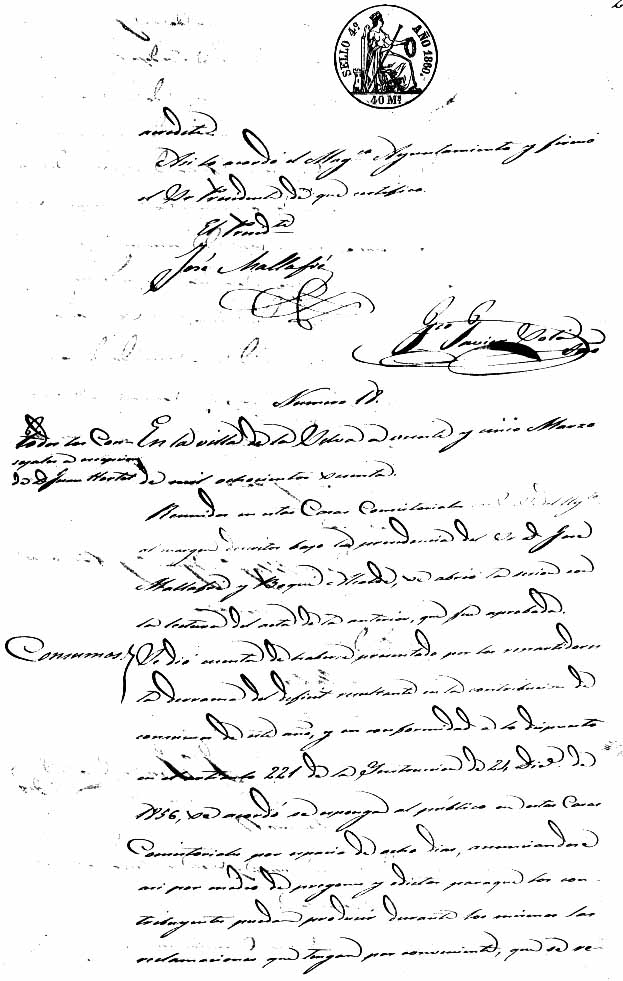 SELLO 4º AÑO 1860.
40 Ms
acredite.
Asi lo acordó el Magco Ayuntamiento y firmó
el Sr Presidente de que certifico.
El Presidte
José Mallafré
Número 18.
Todos los Con- En la villa de la Selva a veinte y cinco Marzo
cejales a escepcion
de D Juan Hortet de mil ochocientos sesenta.
Reunidos en estas Casas Consistoriales
al margen descritos bajo la presidencia del Sr D José
Mallafré y Roque Alcalde, se abrió la sesion con
la lectura del acta de la anterior, que fué aprobada.
Consumos. Se dió cuenta de haberse presentado por los repartidores
la derrama del deficit resultante en la contribucion de
consumos de este año, y en conformidad a lo dispuesto
en el articulo 221 de la Instruccion de 24 Dice de
1856, se acordó se esponga al público en estas Casas
Consistoriales por espacio de ocho dias, anunciandose
asi por medio de pregones y edictos paraque los con-
tribuyentes puedan producir durante los mismos las
reclamaciones que tengan por conveniente, que se re-